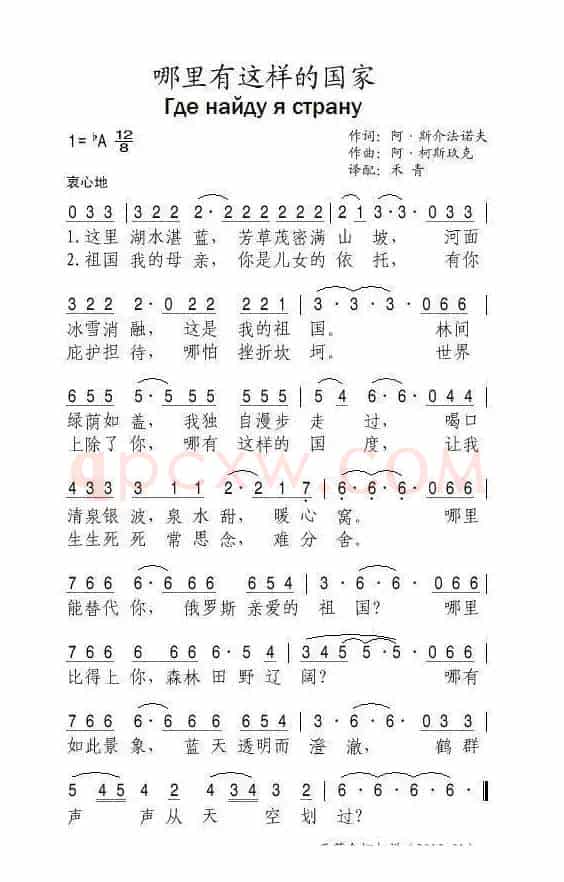 哪里有这样的国家
Где найду я страну
1=ᵇA 12/8
作词：阿·斯介法诺夫
作曲：阿·柯斯玖克
译配：禾青
哀心地
0 3 3 | 3 2 2 2· 2 2 2 2 2 2 | 2 1 3· 3· 0 3 3 |
1.这里 湖水湛蓝，芳草茂密满山坡，河面
2.祖国 我的母亲，你是儿女的依托，有你
3 2 2 2· 0 2 2 2 2 1 | 3· 3· 3· 0 6 6 |
冰雪消融，这是我的祖国。林间
庇护担待，哪怕挫折坎坷。世界
6 5 5 5· 5 5 5 5 5 5 | 5 4 6· 6· 0 4 4 |
绿荫如盖，我独自漫步走过，喝口
上除了你，哪有这样的国度，让我
qpcxw.com
4 3 3 3 1 1 2· 2 1 7 | 6· 6· 6· 0 6 6 |
清泉银波，泉水甜，暖心窝。哪里
生生死死常思念，难分舍。
7 6 6 6· 6 6 6 6 5 4 | 3· 3· 3· 0 6 6 |
能替代你，俄罗斯亲爱的祖国？哪里
7 6 6 6· 6 6 6· 5 4 | 3 4 5 5· 5· 0 4 4 |
比得上你，森林田野辽阔？哪有
如此景象，蓝天透明而澄澈，鹤群
5 4 5 4 2 4 3 4 3 2 | 6· 6· 6· 6· ‖
声声从天空划过？